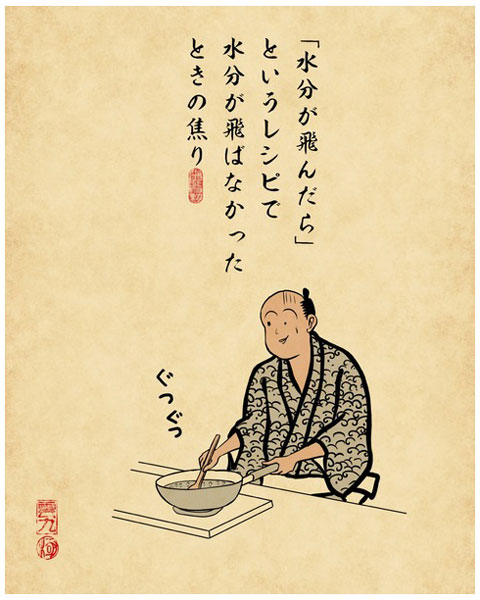 「水分が飛んだら」
というレシピで
水分が飛ばなかった
ときの焦り
ぐつぐつ